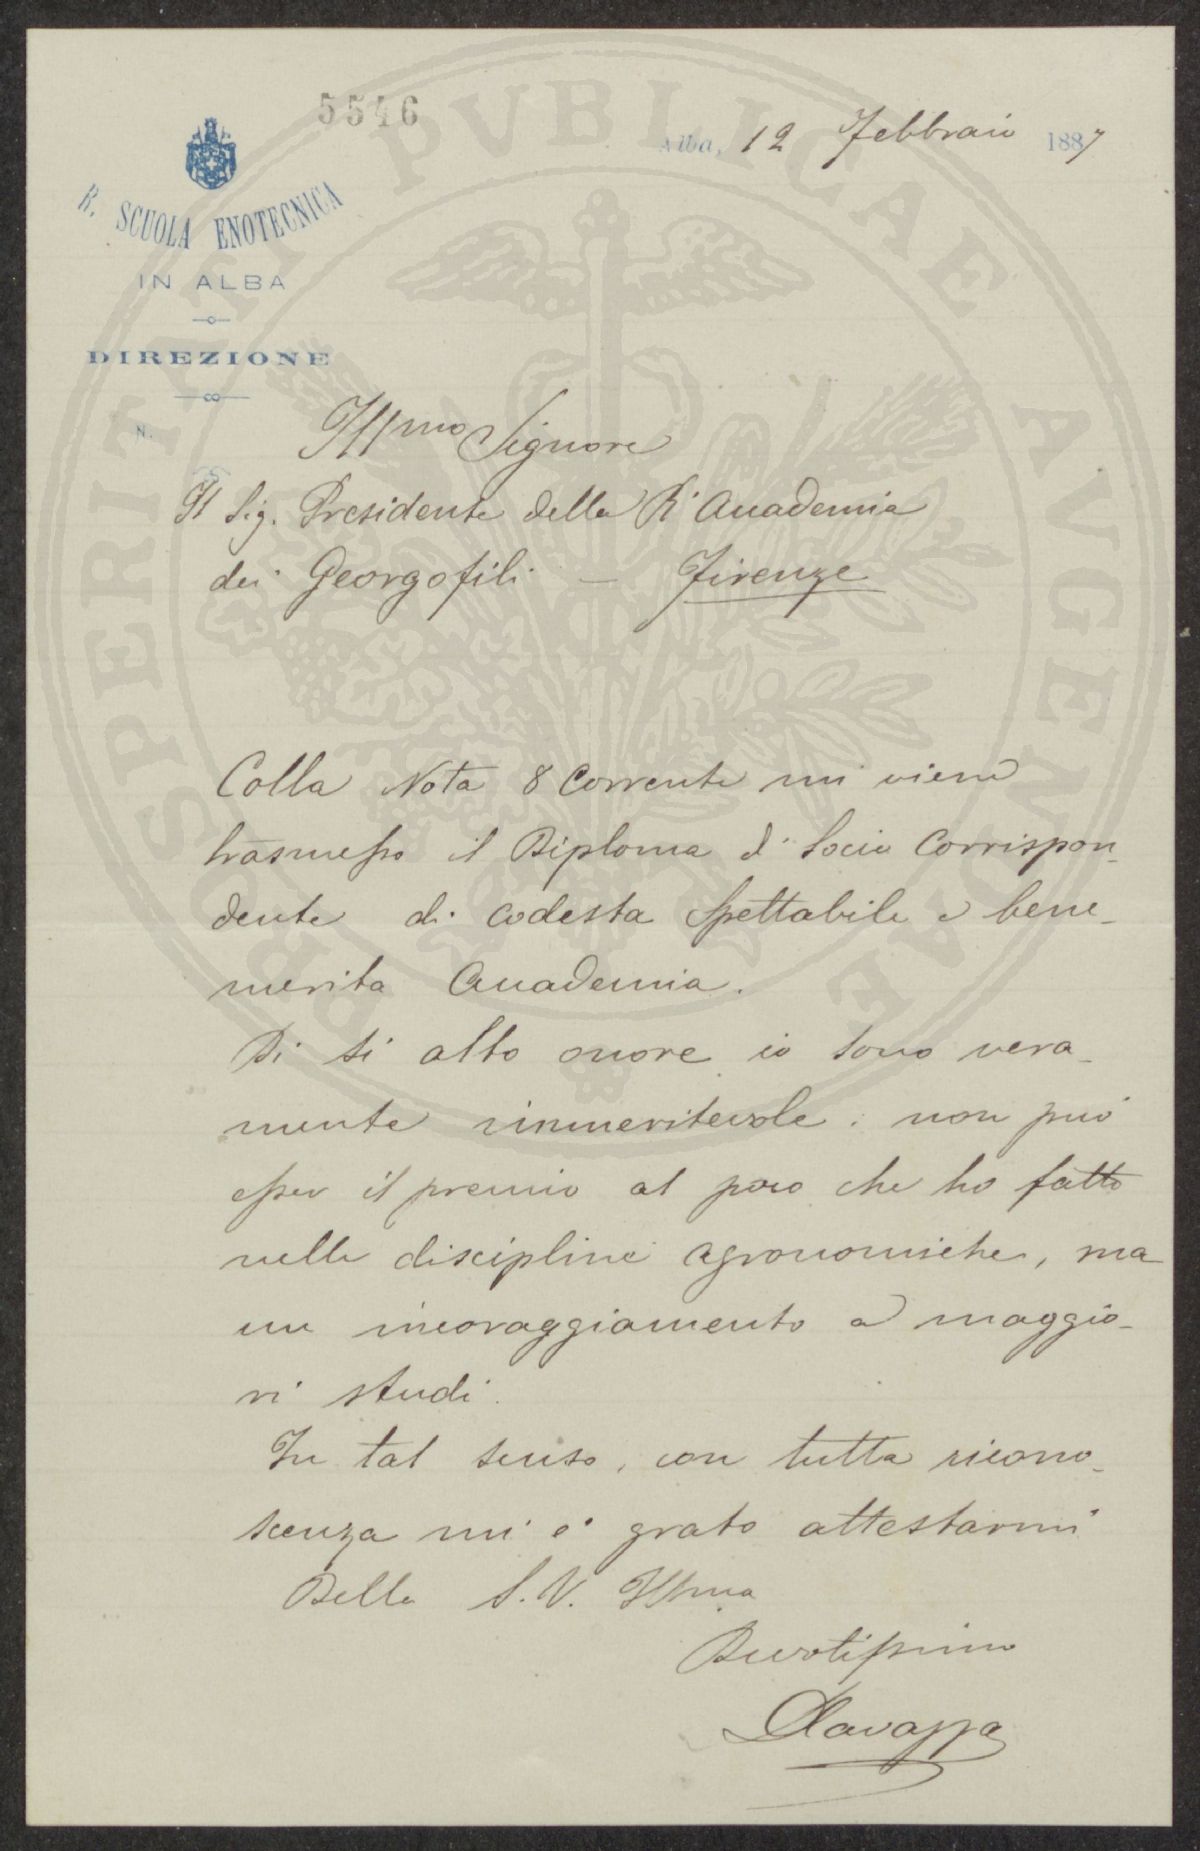 5546
Alba, 12 Febbraio 1887
R. SCUOLA ENOTECNICA
IN ALBA
DIREZIONE
N.
Illmo Signore
Il Sig. Presidente della R. Accademia
dei Georgofili – Firenze
Colla Nota 8 Corrente mi viene
trasmesso il Diploma di Socio Corrispon-
dente di codesta Spettabile e bene-
merita Accademia.
Di sì alto onore io sono vera-
mente immeritevole: non può
esser il premio al poco che ho fatto
nelle discipline agronomiche, ma
un incoraggiamento a maggio-
ri studi.
In tal senso, con tutta ricono-
scenza mi è grato attestarmi
Della S. V. Illma
Devotissimo
D Cavazza
PROSPERITATI PVBLICAE AVGENDAE